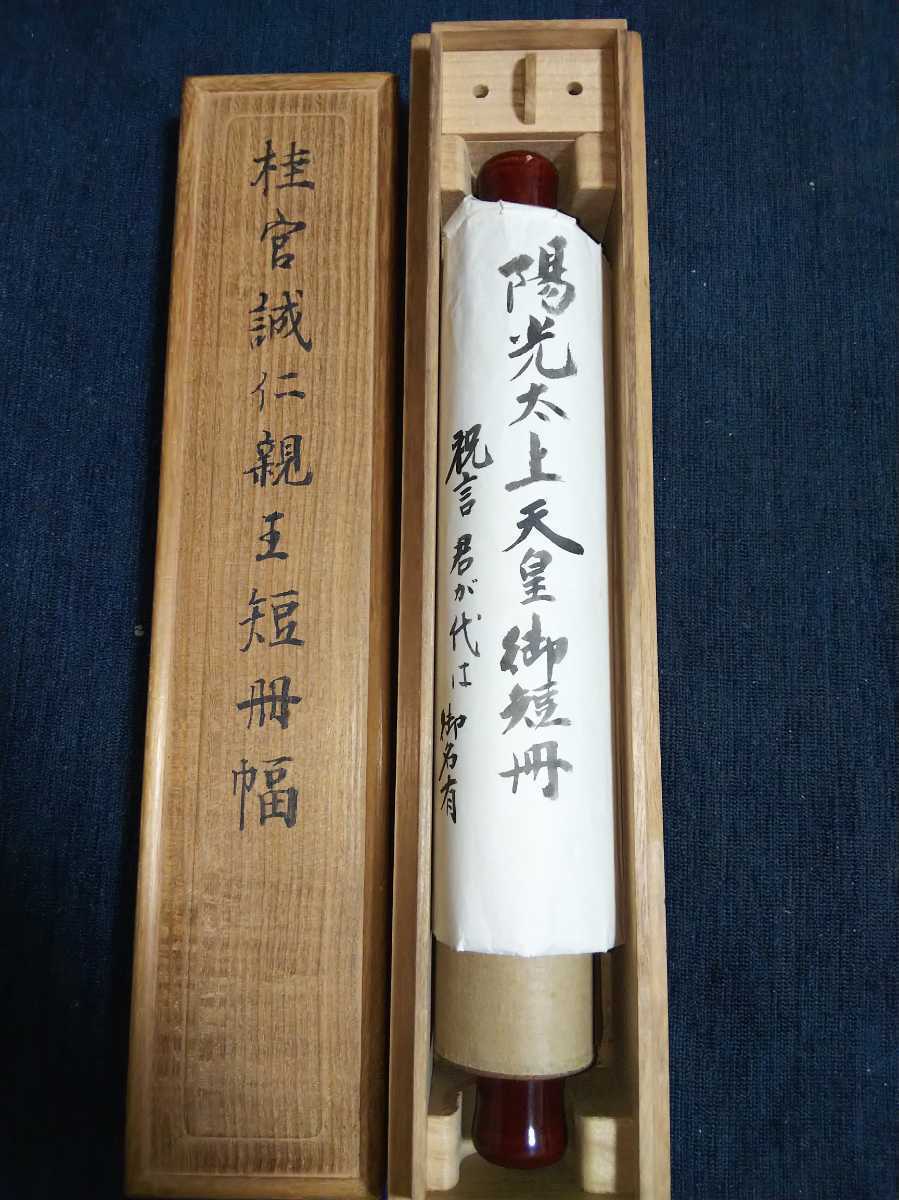 桂宮誠仁親王短冊幅
陽光太上天皇御短冊
祝言 君が代は 御名有